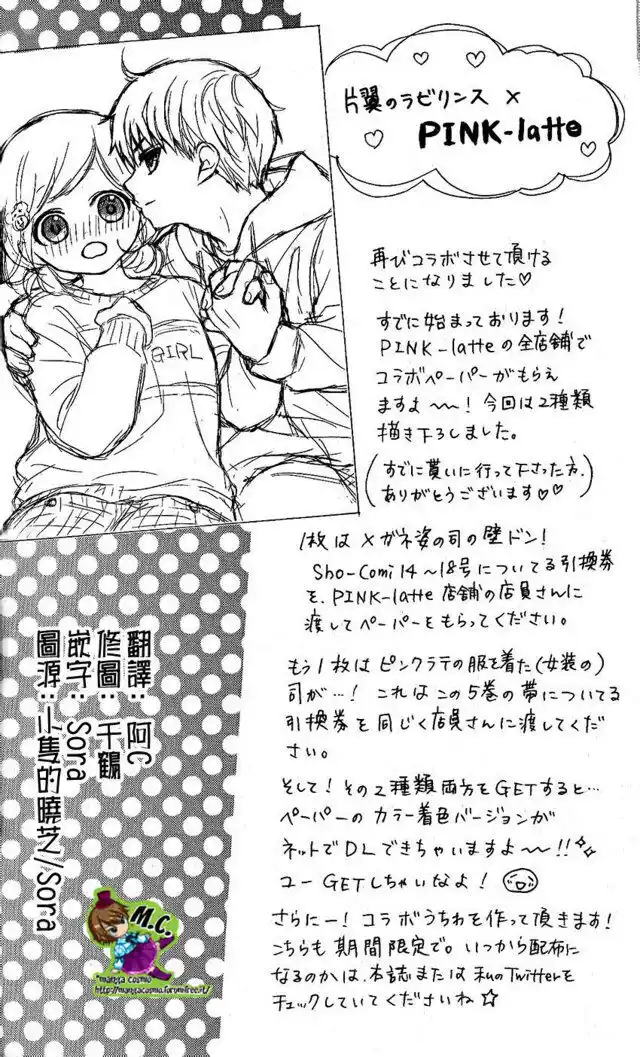 片翼のラビリンス ×
PINK-latte
再びコラボさせて頂ける
ことになりました♡
すでに始まっております!
PINK-latteの全店舗で
コラボペーパーがもらえ
ますよ〜〜!今回は2種類
描き下ろしました。
(すでに貰いに行って下さった方、
ありがとうございます♡♡)
1枚はメガネ姿の司の壁ドン!
Sho-Comi 14〜18号についてる引換券
を、PINK-latte店舗の店員さんに
渡してペーパーをもらってください。
もう1枚はピンクラテの服を着た(女装の)
司が…!これはこの5巻の帯についてる
引換券を同じく店員さんに渡してくだ
さい。
そして!その2種類両方をGETすると…
ペーパーのカラー着色バージョンが
ネットでDLできちゃいますよ〜〜!!
ユーGETしちゃいなよ!
さらにー!コラボうちわを作って頂きます!
こちらも期間限定で。いつから配布に
なるのかは、本誌または私のTwitterを
チェックしていてくださいね☆
GIRL
翻譯:阿C
修圖:千鶴
嵌字:Sora
圖源:小隻的曉芝/Sora
M.C.
*manga cosmo
http://mangacosmo.forumfree.it/